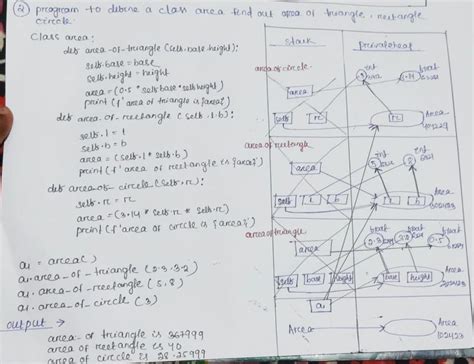 ② program to define a class area find out area of triangle, rectangle
circle.
class area:
def area-of-triangle (self.base.height):
self.base = base
self.height = height
area = (0.5 * self.base * self.height)
print (f' area of triangle is {area}')
def area-of-rectangle (self.l.b):
self.l = l
self.b = b
area = (self.l * self.b)
print (f' area of rectangle is {area}')
def area-of-circle (self.r):
self.r = r
area = (3.14 * self.r * self.r)
print (f' area of circle is {area}')
a1 = area()
a1.area-of-triangle (2.3.3.2)
a1.area-of-rectangle (5,8)
a1.area-of-circle (3)
output →
area-of triangle is 367999
area of rectangle is 40
area of circle is 28.25999
stack
privateheap
area of circle
area
self
r
int
3
float
3.14
r
Area
area of rectangle
area
self
l
b
int
5
int
8
l
b
Area
area of triangle
area
self
base
height
float
2.3
float
float
0.5
base
height
Area
a1
Area
Area